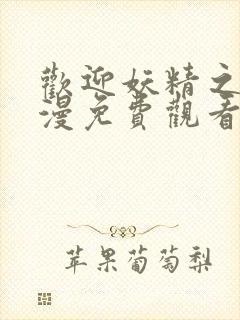 歡迎妖精之
漫免費觀看
苹果葡萄梨